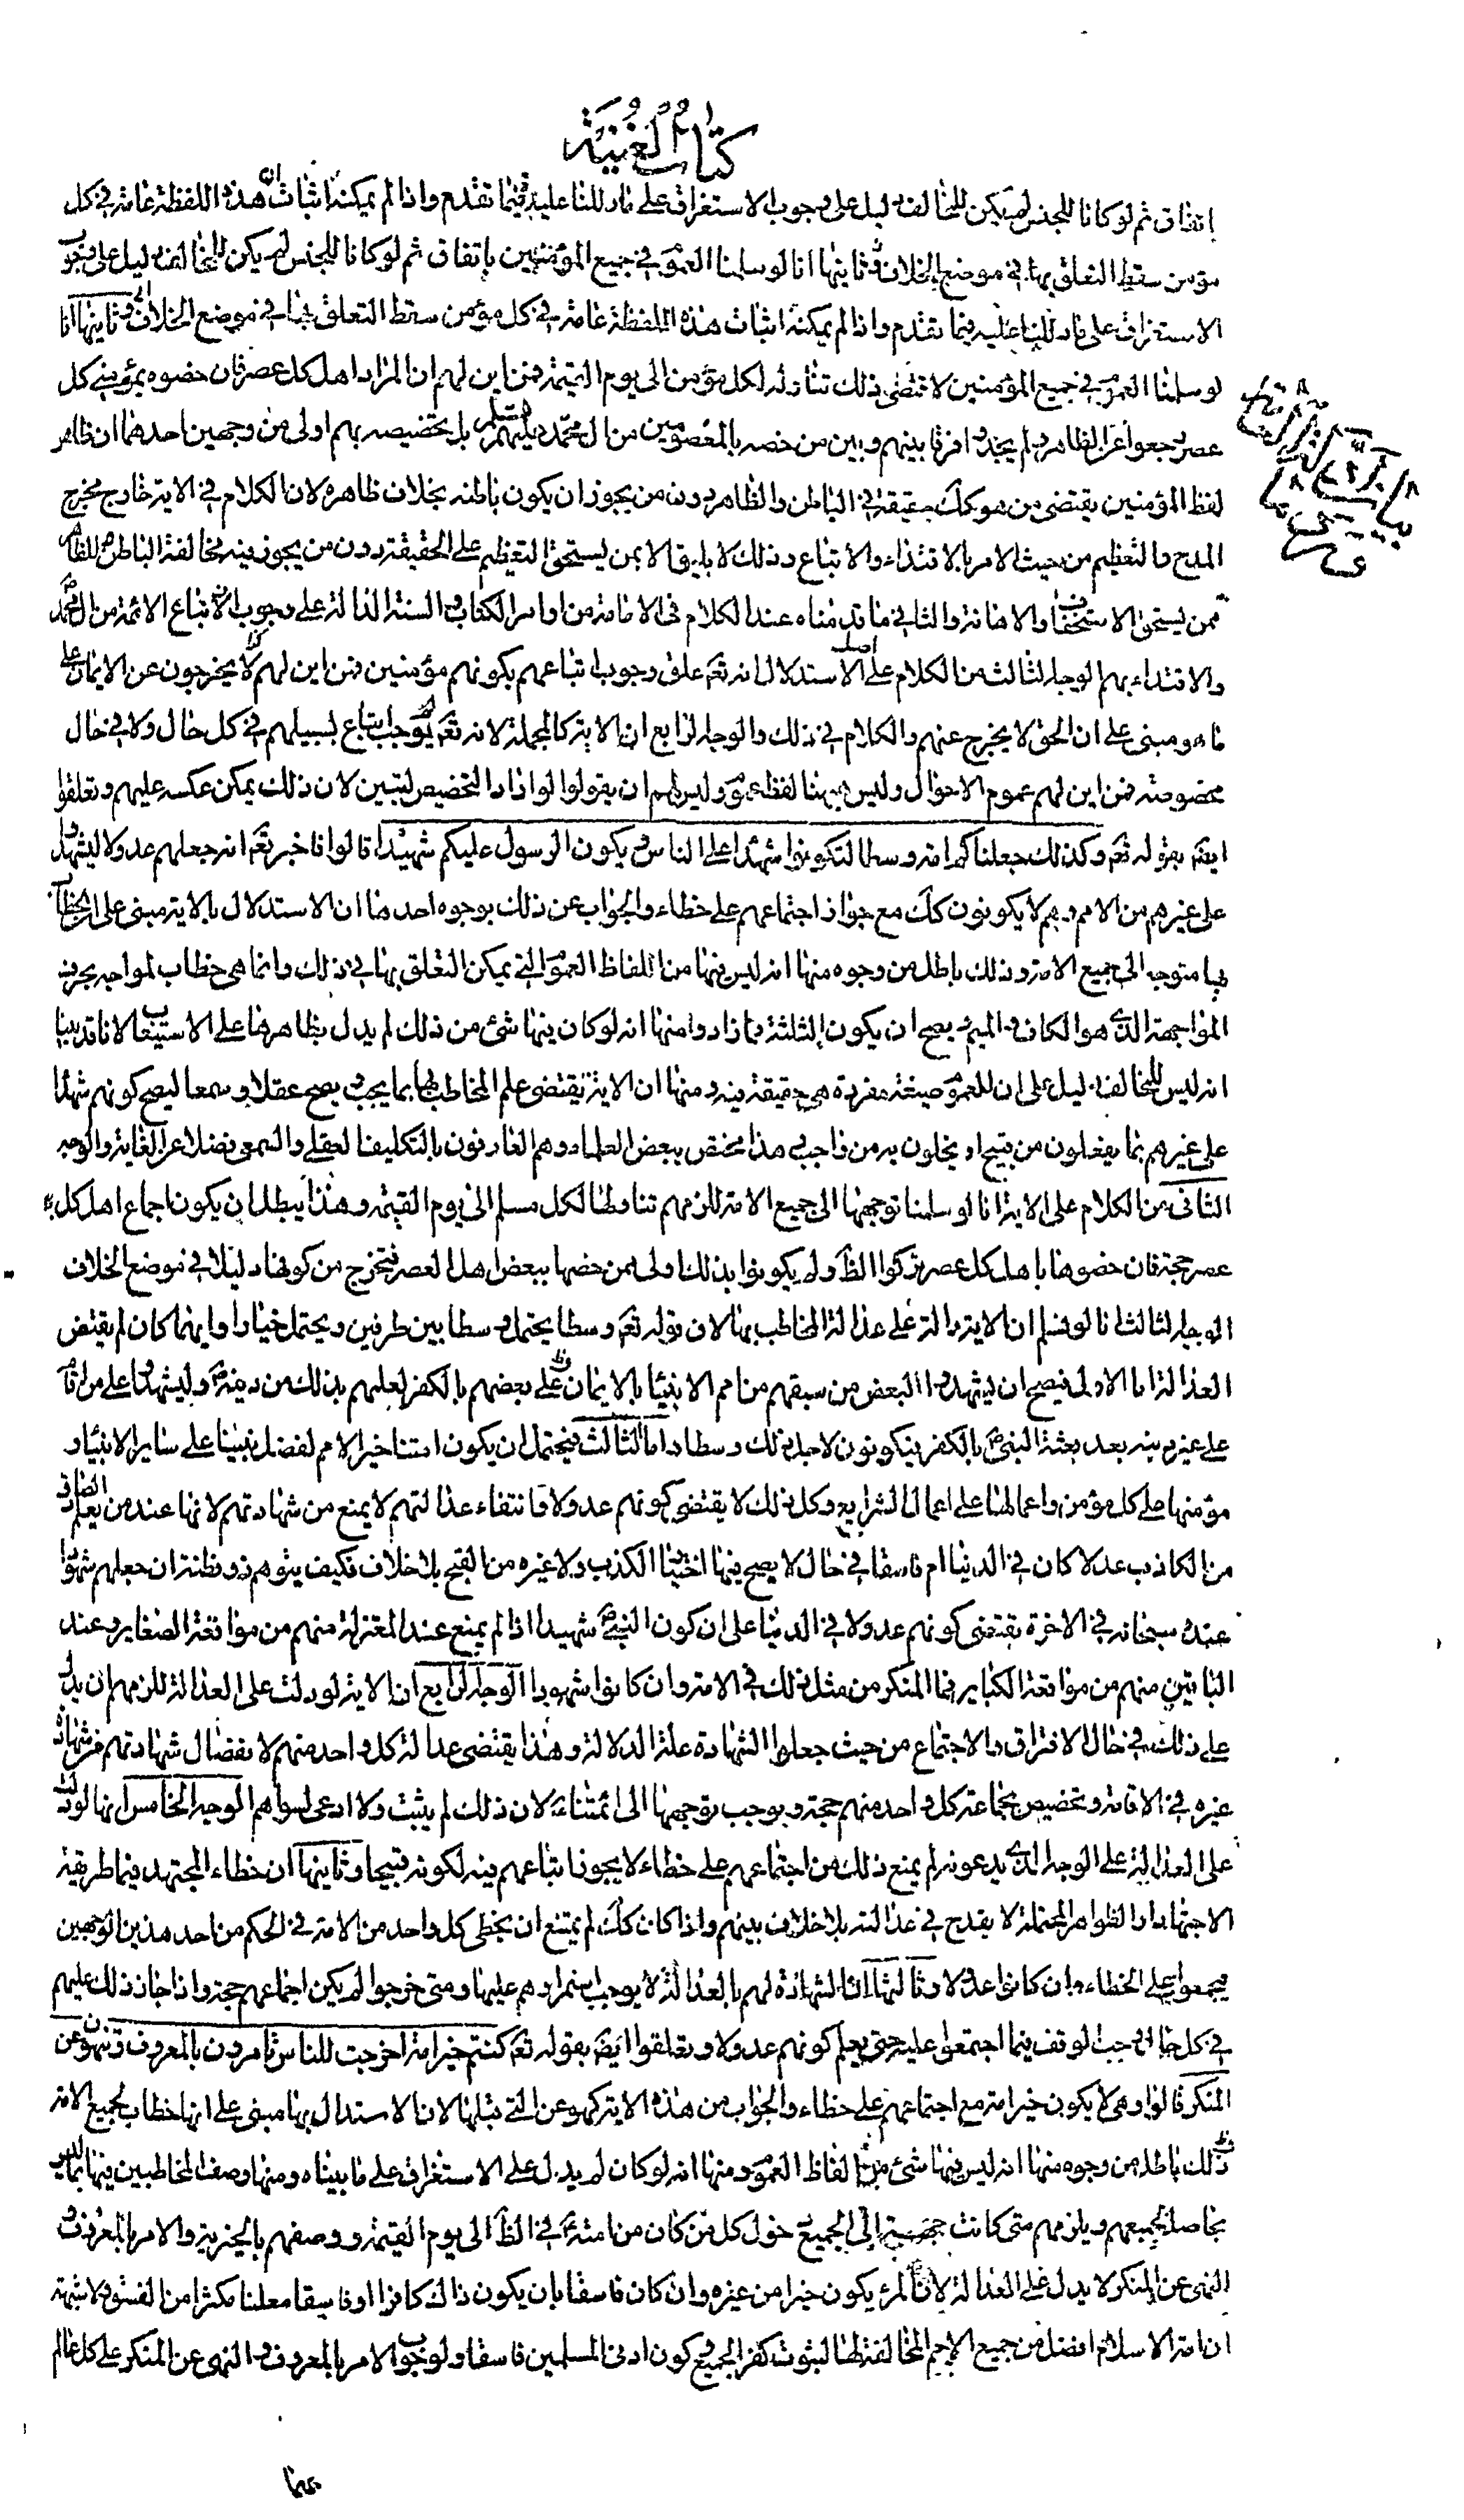 كتاب الغنية
باتفاق ثم لو كانا للجنس لم يكن للمخالف دليل على وجوب الاستغراق على ما دللنا عليه فيما تقدم واذا لم يمكنه اثبات هذه اللفظة عامة في كل
مؤمن سقط التعلق بها في موضع الخلاف وثانيها انا لو سلمنا العموم في جميع المؤمنين باتفاق ثم لو كانا للجنس لم يكن للمخالف دليل على وجوب
الاستغراق على ما دللنا عليه فيما تقدم واذا لم يمكنه اثبات هذه اللفظة عامة في كل مؤمن سقط التعلق بها في موضع الخلاف وثانيها انا
لو سلمنا العموم في جميع المؤمنين لاقتضى ذلك تناوله لكل مؤمن الى يوم القيمة فمن اين لهم ان المراد اهل كل عصر فان خصوه بمؤمني كل
عصر رجعوا عن الظاهر ولم يجدوا فرقا بينهم وبين من خصه بالمعصومين من ال محمد عليهم السلم بل تخصيصه بهم اولى من وجهين احدهما ان ظاهر
لفظ المؤمنين يقتضى من هو كك حقيقة في الباطن والظاهر دون من يجوز ان يكون باطنه بخلاف ظاهره لان الكلام في الاية خارج مخرج
المدح والتعظيم من حيث الامر بالاقتداء والاتباع وذلك لا يليق الا بمن يستحق التعظيم على الحقيقة دون من يجوز فيه مخالفة الباطن للظاهر
ممن يستحق الاستخفاف والاهانة والثاني ما قدمناه عند الكلام في الامامة من اوامر الكتاب والسنة الدالة على وجوب الاتباع الائمة من ال محمد
والاقتداء بهم الوجه الثالث من الكلام على اصل الاستدلال انه تعم علق وجوب اتباعهم بكونهم مؤمنين فمن اين لهم انهم لا يخرجون عن الايمان على
ما هو مبنى على ان الحق لا يخرج عنهم والكلام في ذلك والوجه الرابع ان الاية كالمجملة لانه تعم لم يوجب اتباع لسبيلهم في كل حال ولا في حال
مخصوصة فمن اين لهم عموم الاحوال وليس ههنا لفظ عموم وليس لهم ان يقولوا لو اراد التخصيص لتبين لان ذلك يمكن عكسه عليهم وتعلقوا
ايضا بقوله تعم وكذلك جعلناكم امة وسطا لتكونوا شهداء على الناس ويكون الرسول عليكم شهيدا قالوا فاخبر تعم انه جعلهم عدولا ليشهدوا
على غيرهم من الامم وهم لا يكونون كك مع جواز اجتماعهم على خطاء والجواب عن ذلك بوجوه احدها ان الاستدلال بالاية مبنى على ان الخطاب
بها متوجه الى جميع الامة وذلك باطل من وجوه منها انه ليس فيها من الفاظ العموم التي يمكن التعلق بها في ذلك وانما هي خطاب لمواجه بحرف
المواجهة الذي هو الكاف والميم يصح ان يكون الثلثة فما زاد ومنها انه لو كان فيها شئ من ذلك لم يدل بظاهرها على الاستيعاب لانا قد بينا
انه ليس للمخالف دليل على ان للعموم صيغة مفردة هي حقيقة فيه ومنها ان الاية تقتضى علم المخاطب بها بما يجب ويصح عقلا وسمعا ليصح كونهم شهداء
على غيرهم بما يفعلون من قبيح او يخلون به من واجب هذا مختص ببعض العلماء وهم العارفون بالتكليف العقلي والسمعى فضلا عن الغاية والوجه
الثانى من الكلام على الاية انا لو سلمنا توجهها الى جميع الامة للزمهم تناولها لكل مسلم الى يوم القيمة وهذا يبطل ان يكون اجماع اهل كل
عصر حجة فان خصوها باهل كل عصر تركوا الظ ولم يكونوا بذلك اولى ممن خصها ببعض اهل العصر فتخرج من كونها دليلا في موضع الخلاف
الوجه الثالث انا لا نسلم ان الاية دالة على عدالة المخاطب بها لان قوله تعم وسطا يحتمل وسطا بين طرفين ويحتمل خيارا وايهما كان لم يقتض
العدالة اما الاولى فيصح ان يشهدوا البعض من سبقهم من امم الانبياء بالايمان وعلى بعضهم بالكفر لعلمهم بذلك من دينه وليشهدوا على من اقام
على غير دينه بعد بعثة النبي بالكفر فيكونون لاجل ذلك وسطا واما الثالث فيحتمل ان يكون امتنا خير الامم لفضل نبينا على ساير الانبياء و
مؤمنها على كل مؤمن واعمالها على اعمال الشرايع وكل ذلك لا يقتضى كونهم عدولا وانتفاء عدالتهم لا يمنع من شهادتهم لانها عند من يعلم الصادق
من الكاذب عدلا كان في الدنيا ام فاسقا في حال لا يصح فيها اختيار الكذب ولا غيره من القبح بلا خلاف فكيف يتوهم ذو فطنة ان جعلهم شهودا
عنده سبحانه في الاخرة يقتضى كونهم عدولا في الدنيا على ان كون النبي شهيدا اذا لم يمنع عند المعتزلة منهم من مواقعة الصغاير وعند
الباقين منهم من مواقعة الكباير فما المنكر من مثل ذلك في الامة وان كانوا شهودا الوجه الرابع ان الاية لو دلت على العدالة للزمهم ان يدل
على ذلك في حال الافتراق والاجتماع من حيث جعلوا الشهادة علة الدلالة وهذا يقتضى عدالة كل واحد منهم لانفصال شهادتهم من شهادة
غيره في الاقامة وتخصيص بجماعة كل واحد منهم حجة ويوجب توجهها الى ائمتنا لان ذلك لم يثبت ولا ادعى لسواهم الوجه الخامس انها لو دلت
على العدالة على الوجه الذي يدعونه لم يمنع ذلك من اجتماعهم على خطاء لا يجوز اتباعهم فيه لكونه قبيحا وثانيها ان خطاء المجتهد فيما طريقه
الاجتهاد او الظواهر المحتملة لا يقدح في عدالته بلا خلاف بينهم واذا كان كك لم يمتنع ان يخطى كل واحد من الامة في الحكم من احد هذين الوجهين
فيجمعوا على الخطاء وان كانوا عدولا وثالثها ان الشهادة لهم بالعدالة لا يوجب استمرارهم عليها ومتى خرجوا لم يكن اجماعهم حجة واذا جاز ذلك عليهم
في كل حال وجب الوقف فيما اجتمعوا عليه حتى يعلم كونهم عدولا وتعلقوا ايضا بقوله تعم كنتم خير امة اخرجت للناس تأمرون بالمعروف وتنهون عن
المنكر قالوا وهي لا يكون خير امة مع اجتماعهم على خطاء والجواب من هذه الاية كهو عن التي قبلها لان الاستدلال بها مبنى على انها خطاب لجميع الامة
وذلك باطل من وجوه منها انه ليس فيها شئ من الفاظ العموم ومنها انه لو كان لم يدل على الاستغراق على ما بيناه ومنها وصف المخاطبين فيها بما ليس
بحاصل لجميعهم ويلزمهم متى كانت الى الجميع دخول كل من كان من امته في الظ الى يوم القيمة ووصفهم بالخيرية والامر بالمعروف و
النهى عن المنكر لا يدل على العدالة لان المرء يكون خيرا من غيره وان كان فاسقا بان يكون ذاك كافرا او فاسقا معلنا مكثرا من الفسق ولا شبهة
ان امة الاسلام افضل من جميع الامم المخالفة لها لثبوت كفر الجميع وكون ادنى المسلمين فاسقا ولوجوب الامر بالمعروف والنهى عن المنكر على كل عالم